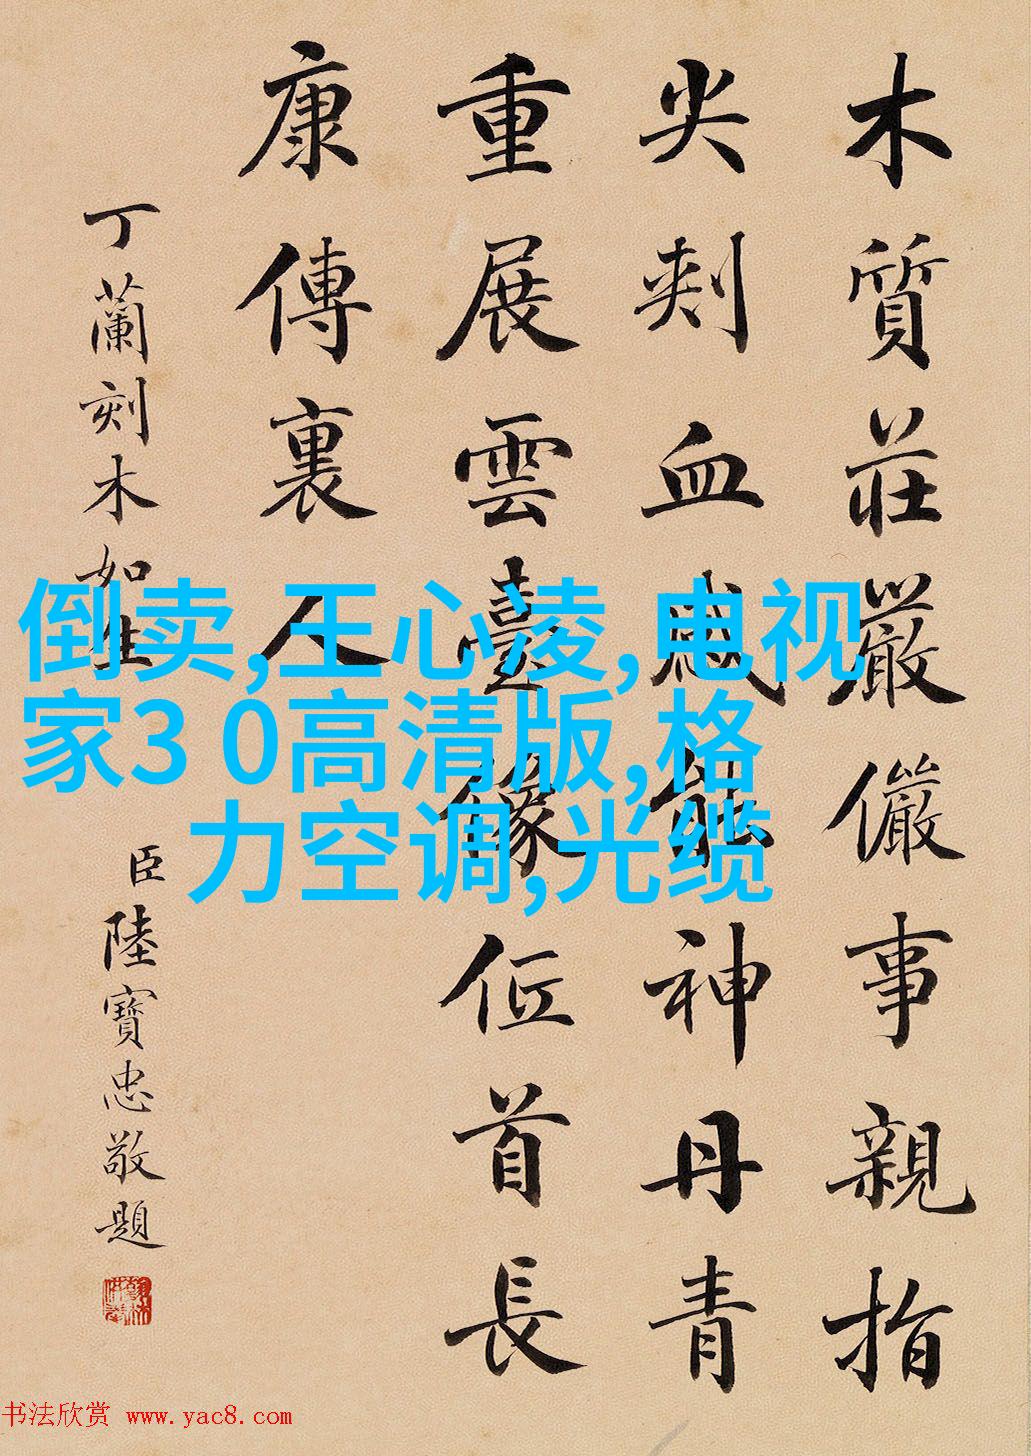 木質莊嚴儼事親指
尖刾血感能神丹青
重展雲臺像位首長
康傳裏人
丁蘭刻木如生
臣陸寶忠敬題
倒卖,王心凌,电视
家3 0高清版,格
力空调,光缆
书法欣赏 www.yac8.com